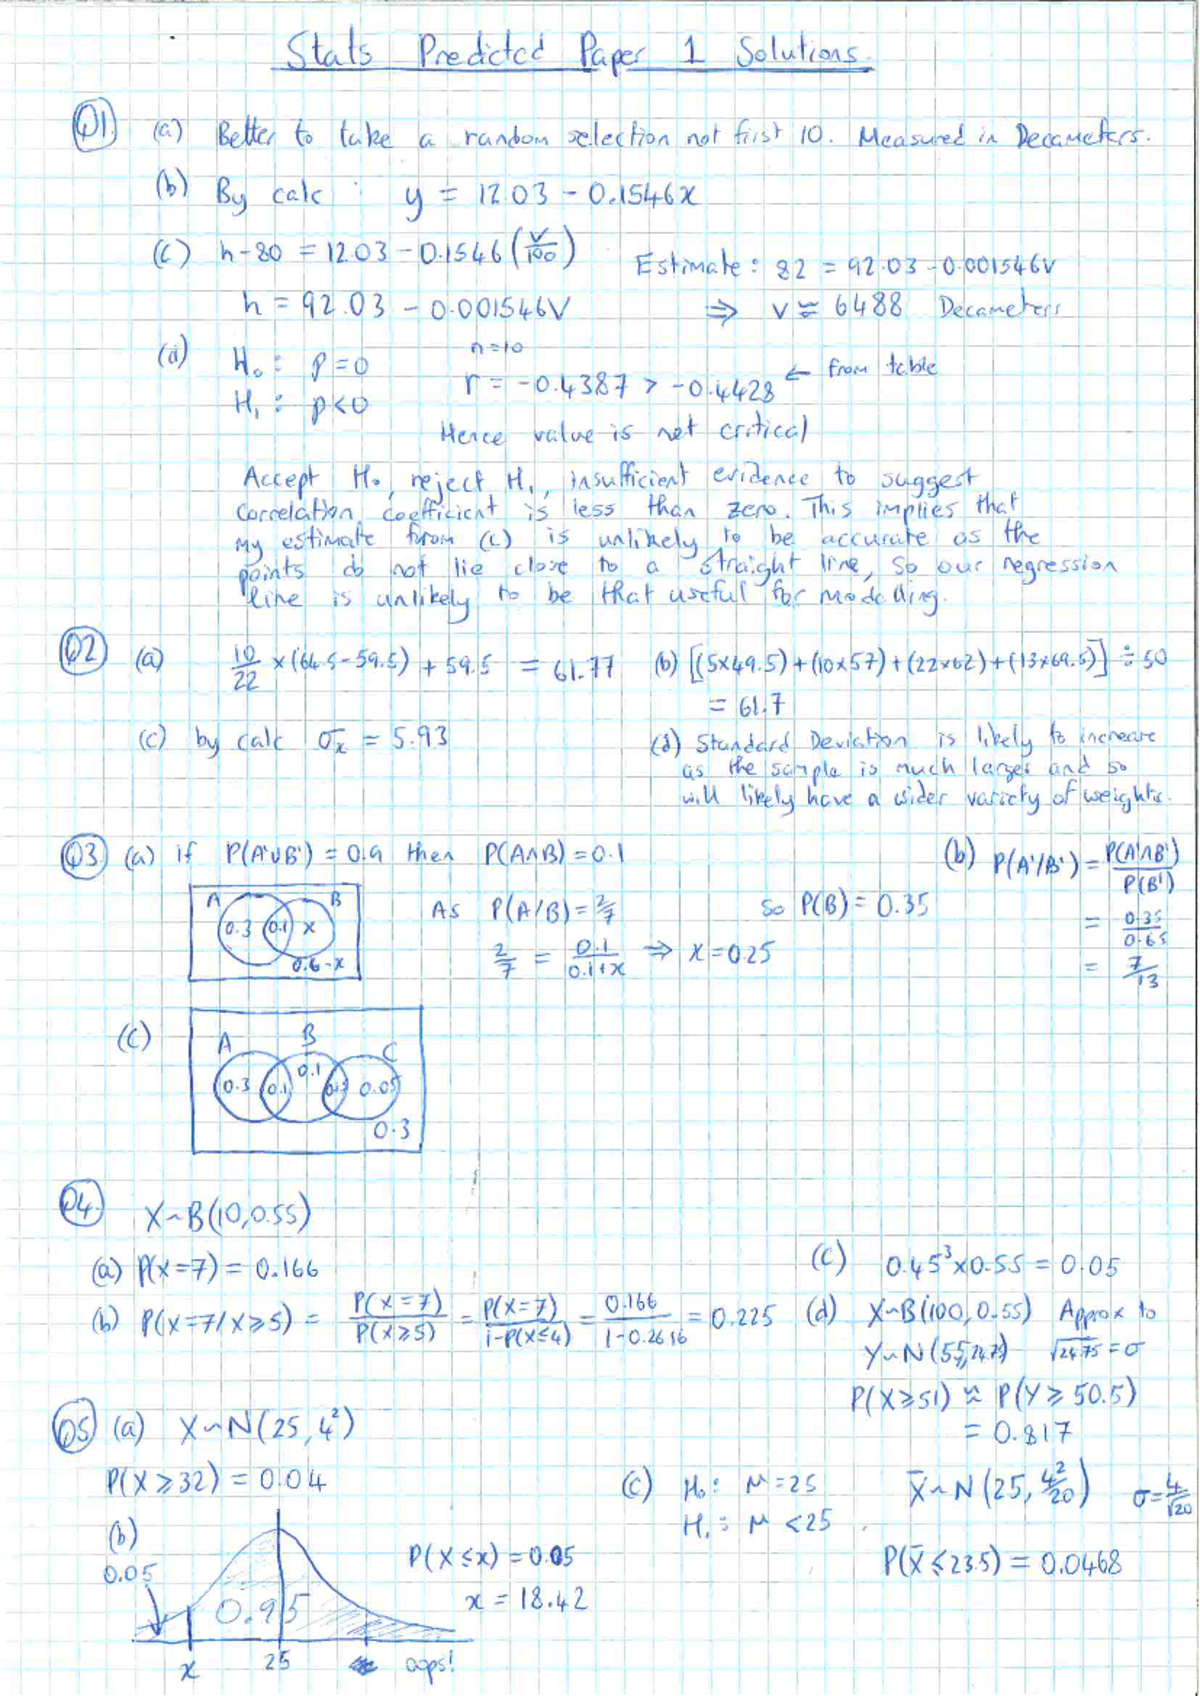 Stats Predicted Paper 1 Solutions.
Q1. (a) Better to take a random selection not first 10. Measured in Decameters.
(b) By calc : y = 12.03 - 0.1546x
(c) h-80 = 12.03 - 0.1546 (v/100)
h = 92.03 - 0.001546V
Estimate: 82 = 92.03 - 0.001546V
⇒ V ≈ 6488 Decameters
(d) H₀ : ρ = 0
H₁ : ρ < 0
n=10
r = -0.4387 > -0.4428 ← from table
Hence value is not critical
Accept H₀, reject H₁, insufficient evidence to suggest
correlation coefficient is less than zero. This implies that
my estimate from (c) is unlikely to be accurate as the
points do not lie close to a straight line, so our regression
line is unlikely to be that useful for modelling.
Q2 (a) 10/22 × (64.5-59.5) + 59.5 = 61.77
(b) [(5×49.5)+(10×57)+(22×62)+(13×69.5)] ÷ 50
= 61.7
(c) by calc σₓ = 5.93
(d) Standard Deviation is likely to increase
as the sample is much larger and so
will likely have a wider variety of weights.
Q3. (a) if P(A'∪B') = 0.9 then P(A∩B) = 0.1
A B
0.3 0.1 x
0.6-x
As P(A/B) = 2/7
2/7 = 0.1/(0.1+x) ⇒ x = 0.25
So P(B) = 0.35
(b) P(A'/B') = P(A'∩B')/P(B')
= 0.35/0.65
= 7/13
(c)
A B C
0.3 0.1 0.1 0.05
0.3
Q4. X~B(10,0.55)
(a) P(X=7) = 0.166
(b) P(X=7/X≥5) = P(X=7)/P(X≥5) = P(X=7)/(1-P(X≤4)) = 0.166/(1-0.2616) = 0.225
(c) 0.45³×0.55 = 0.05
(d) X~B(100,0.55) Approx to
Y~N(55,24.75) √24.75 = σ
P(X≥51) ≈ P(Y≥50.5)
= 0.817
Q5 (a) X~N(25,4²)
P(X≥32) = 0.04
(b)
0.05
0.95
x 25 oops!
P(X≤x) = 0.05
x = 18.42
(c) H₀ : μ = 25
H₁ : μ < 25
X̄~N(25, 4²/20) σ = 4/√20
P(X̄≤23.5) = 0.0468